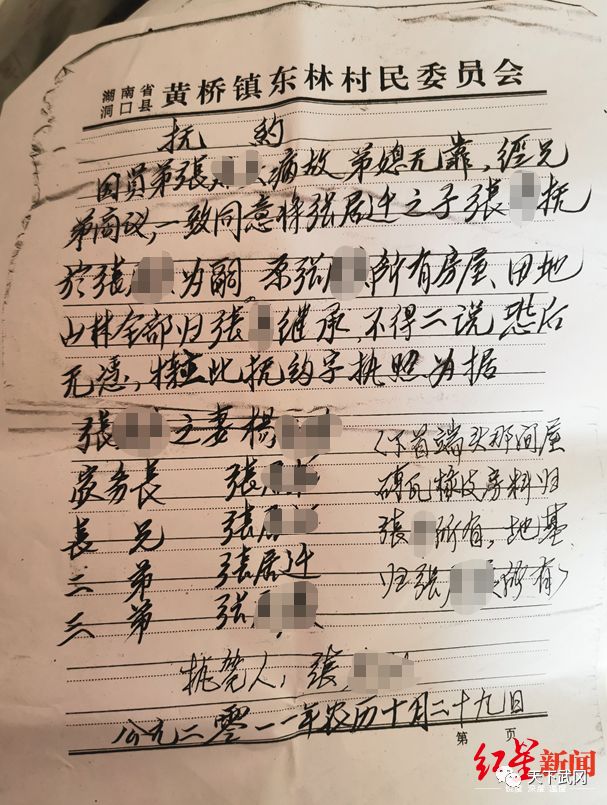 湖南省
洞口县 黄桥镇东林村民委员会
抚约
因员弟張 病故 弟媳无靠，经兄
弟商议，一致同意将张居迁之子張 抚
於張 为嗣 原张 所有房屋、田地
山林全部归张 继承，不得二说 恐后
无凭，特立此抚约字执照为据
張 之妻楊
张居
長兄 张居
二弟 张居迁
三弟 张
（下首端头那间屋
砖瓦椽皮房料归
张 所有，地基
归张 所有）
执笔人：張
公元二零一一年农历十月二十九日
第 页
红星新闻
天下武冈